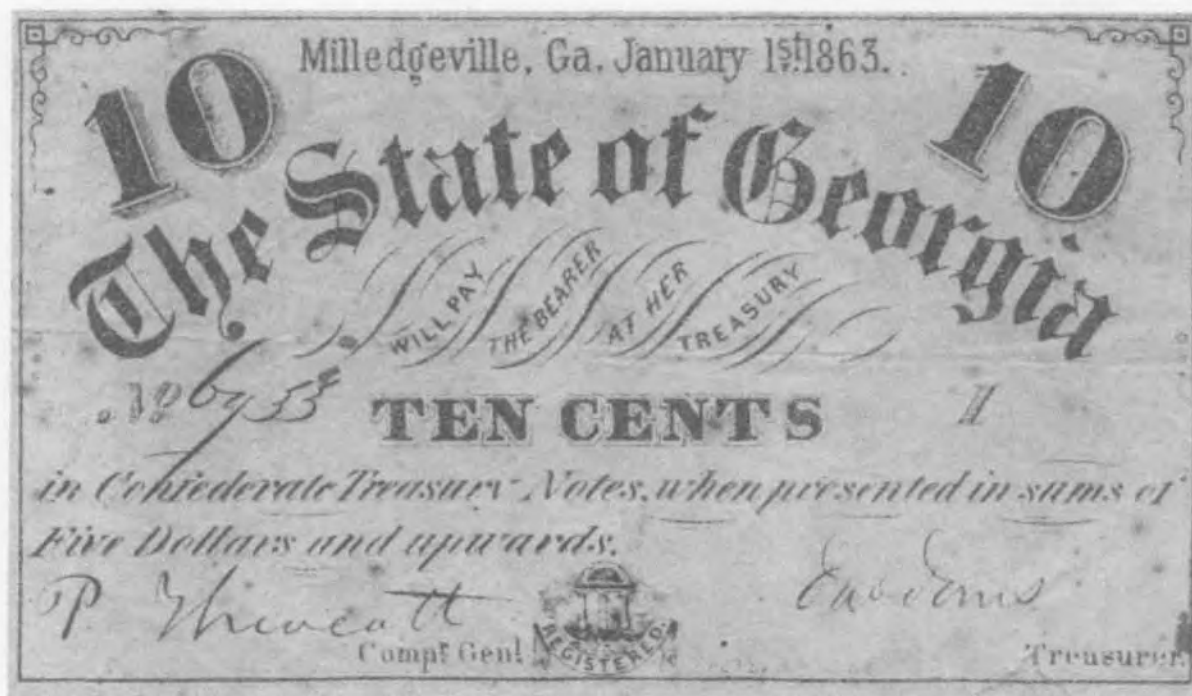 Milledgeville, Ga. January 1st. 1863.
10 10
The State of Georgia
WILL PAY THE BEARER AT HER TREASURY
No
TEN CENTS
in Confederate Treasury Notes, when presented in sums of
Five Dollars and upwards.
P Thweatt
Compt. Genl.
REGISTERED.
Treasurer